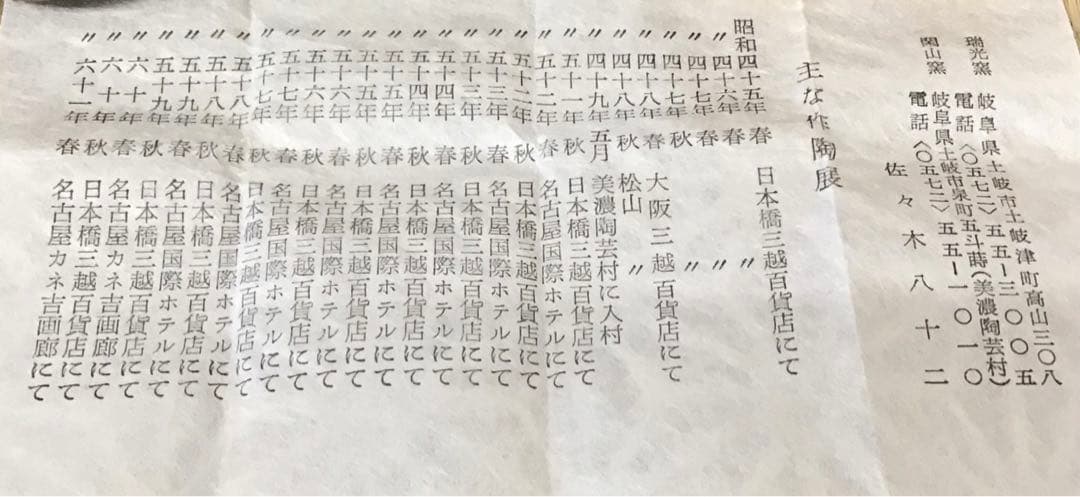 瑞光窯 岐阜県土岐市土岐津町高山三〇八
電話〈〇五七二〉五五―三〇〇五
閑山窯 岐阜県土岐市泉町五斗蒔(美濃陶芸村)
電話〈〇五七二〉五五―一〇一〇
佐々木八十二
主な作陶展
昭和四十五年 春 日本橋三越百貨店にて
〃 四十六年 春 〃
〃 四十七年 春 〃
〃 四十七年 秋 〃
〃 四十八年 春 大阪三越百貨店にて
〃 四十八年 秋 松山 〃
〃 四十九年 五月 美濃陶芸村に入村
〃 五十一年 秋 日本橋三越百貨店にて
〃 五十二年 春 名古屋国際ホテルにて
〃 五十二年 秋 日本橋三越百貨店にて
〃 五十三年 春 名古屋国際ホテルにて
〃 五十四年 春 名古屋国際ホテルにて
〃 五十四年 秋 日本橋三越百貨店にて
〃 五十五年 秋 日本橋三越百貨店にて
〃 五十六年 春 名古屋国際ホテルにて
〃 五十六年 秋 日本橋三越百貨店にて
〃 五十七年 春 名古屋国際ホテルにて
〃 五十七年 秋 日本橋三越百貨店にて
〃 五十八年 春 名古屋国際ホテルにて
〃 五十八年 秋 日本橋三越百貨店にて
〃 五十九年 春 名古屋国際ホテルにて
〃 五十九年 秋 日本橋三越百貨店にて
〃 六十年 春 名古屋カネ吉画廊にて
〃 六十年 秋 日本橋三越百貨店にて
〃 六十一年 春 名古屋カネ吉画廊にて